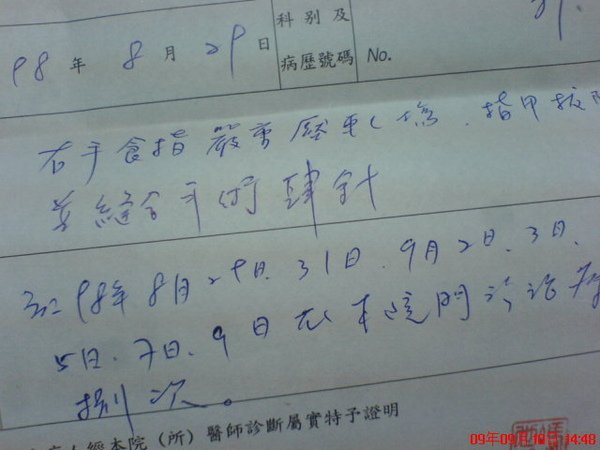 科別及
98年8月29日 病歷號碼 No.
右手食指嚴重壓軋傷、指甲拔除
並縫合手術肆針
於98年8月29日、31日、9月2日、3日、
5日、7日、9日在本院門診治療
捌次。
經本院（所）醫師診斷屬實特予證明
09年09月10日 14:48